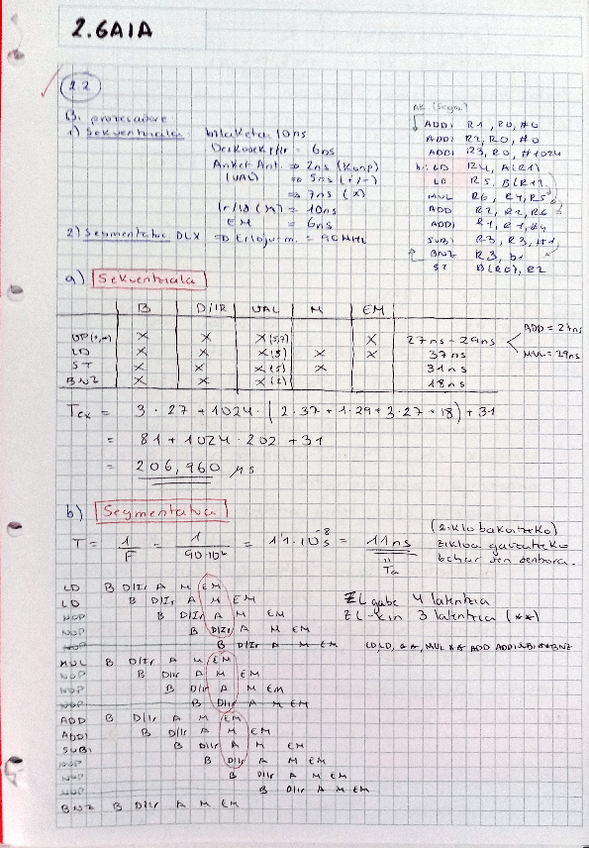 2.6AIA
2.2
B. prozesadore
1) Sekventziala bilaketa 10ns
Deskodek/Ir = 6ns
Aritket Ant. ⇒ 2ns (Konp)
(UAL) ⇒ 5ns (+/-)
⇒ 7ns (x)
Ir/Id (M) = 10ns
EM = 6ns
2) Segmentatua DLX ⇒ = 90MHz
ADDi R1, R0, #0
ADDi R2, R0, #0
ADDi R3, R0, #1024
b1: LD R4, A(R1)
LD R5, B(R1)
MUL R6, R4, R5
ADD R2, R2, R6
ADDi R1, R1, #4
SUBi R3, R3, #1
BNZ R3, b1
ST B(R0), R2
a) Sekventziala
B D/IR UAL M EM
X X X(5,7) X 27ns - 29ns ADD = 27ns
MUL = 29ns
LD X X X(5) X X 37ns
ST X X X(5) X 31ns
BNZ X X X(2) 18ns
Tex = 3 · 27 + 1024 · (2·37 + 1·29 + 3·27 + 18) + 31
= 81 + 1024 · 202 + 31
= 206,960 μs
b) Segmentatua
T = 1/F = 1/90·10⁶ = 1'1·10⁻⁸ s = 11ns
(ziklo bakoitzeko)
behar den denbora.
LD B D/Ir A M EM
LD B D/Ir A M EM
NOP B D/Ir A M EM
NOP B D/Ir A M EM
NOP B D/Ir A M EM
ZL gabe 4 latentzia
ZL-kin 3 latentzia (**)
LD, LD, **, MUL ** ADD ADDi SUBi ** BNZ
MUL B D/Ir A M EM
NOP B D/Ir A M EM
NOP B D/Ir A M EM
NOP B D/Ir A M EM
ADD B D/Ir A M EM
ADDi B D/Ir A M EM
SUBi B D/Ir A M EM
NOP B D/Ir A M EM
NOP B D/Ir A M EM
NOP B D/Ir A M EM
BNZ B D/Ir A M EM